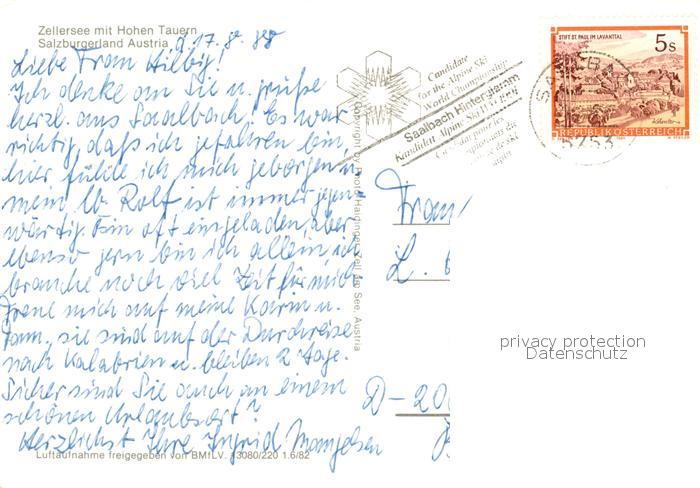 Zellersee mit Hohen Tauern
Salzburgerland Austria
d. 17. 8. 88
Liebe Frau Hilbig!
Ich denke an Sie u. grüße
herzl. aus Saalbach! Es war
richtig, daß ich gefahren bin,
hier fühle ich mich geborgen u.
mein lb. Rolf ist immer gegen-
wärtig. Bin oft eingeladen, aber
ebenso gern bin ich allein, ich
brauche noch viel Zeit für mich
Freue mich auf meine Karin u.
Fam., sie sind auf der Durchreise
nach Kalabrien u. bleiben 2 Tage.
Sicher sind Sie auch an einem
schönen Urlaubsort?
Herzlichst Ihre Ingrid
Luftaufnahme freigegeben von BMfLV. 13080/220 1.6/82
Copyright by Photo Haidinger, Zell am See, Austria
Candidate
for the Alpine Ski
World Championship
Saalbach Hinterglemm
Kandidat Alpine Ski
STIFT ST. PAUL IM LAVANTTAL
5 S
REPUBLIK ÖSTERREICH
5753
Frau
L.
D-20
privacy protection
Datenschutz